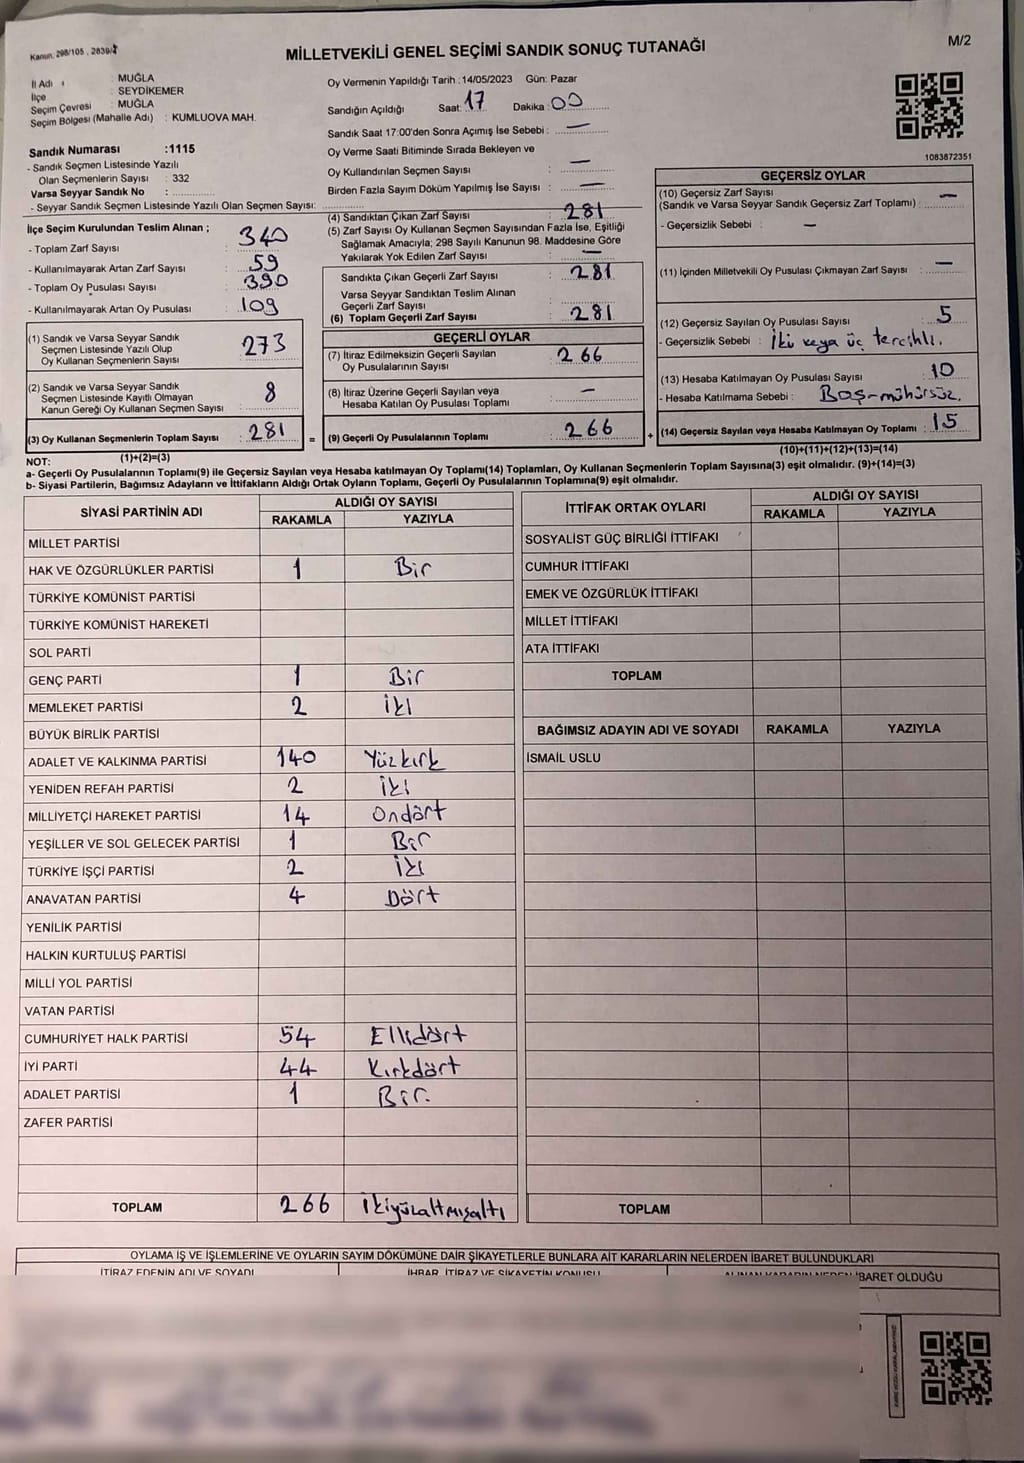 Kanun. 298/105 , 2839/
M/2
MİLLETVEKİLİ GENEL SEÇİMİ SANDIK SONUÇ TUTANAĞI
İl Adı : MUĞLA
İlçe : SEYDİKEMER
Seçim Çevresi : MUĞLA
Seçim Bölgesi (Mahalle Adı) : KUMLUOVA MAH.
Sandık Numarası :1115
- Sandık Seçmen Listesinde Yazılı
Olan Seçmenlerin Sayısı : 332
Varsa Seyyar Sandık No :
- Seyyar Sandık Seçmen Listesinde Yazılı Olan Seçmen Sayısı:
Oy Vermenin Yapıldığı Tarih :14/05/2023 Gün: Pazar
Sandığın Açıldığı Saat: 17 Dakika : 00
Sandık Saat 17:00'den Sonra Açımış İse Sebebi : —
Oy Verme Saati Bitiminde Sırada Bekleyen ve
Oy Kullandırılan Seçmen Sayısı : —
Birden Fazla Sayım Döküm Yapılmış İse Sayısı : —
1083872351
İlçe Seçim Kurulundan Teslim Alınan ;
- Toplam Zarf Sayısı : 340
- Kullanılmayarak Artan Zarf Sayısı : 59
- Toplam Oy Pusulası Sayısı : 390
- Kullanılmayarak Artan Oy Pusulası : 109
(1) Sandık ve Varsa Seyyar Sandık
Seçmen Listesinde Yazılı Olup
Oy Kullanan Seçmenlerin Sayısı : 273
(2) Sandık ve Varsa Seyyar Sandık
Seçmen Listesinde Kayıtlı Olmayan
Kanun Gereği Oy Kullanan Seçmen Sayısı : 8
(3) Oy Kullanan Seçmenlerin Toplam Sayısı : 281
(1)+(2)=(3)
(4) Sandıktan Çıkan Zarf Sayısı : 281
(5) Zarf Sayısı Oy Kullanan Seçmen Sayısından Fazla İse, Eşitliği
Sağlamak Amacıyla; 298 Sayılı Kanunun 98. Maddesine Göre
Yakılarak Yok Edilen Zarf Sayısı : —
Sandıkta Çıkan Geçerli Zarf Sayısı : 281
Varsa Seyyar Sandıktan Teslim Alınan
Geçerli Zarf Sayısı :
(6) Toplam Geçerli Zarf Sayısı : 281
GEÇERLİ OYLAR
(7) İtiraz Edilmeksizin Geçerli Sayılan
Oy Pusulalarının Sayısı : 266
(8) İtiraz Üzerine Geçerli Sayılan veya
Hesaba Katılan Oy Pusulası Toplamı : —
= (9) Geçerli Oy Pusulalarının Toplamı : 266
GEÇERSİZ OYLAR
(10) Geçersiz Zarf Sayısı
(Sandık ve Varsa Seyyar Sandık Geçersiz Zarf Toplamı) : —
- Geçersizlik Sebebi : —
(11) İçinden Milletvekili Oy Pusulası Çıkmayan Zarf Sayısı : —
(12) Geçersiz Sayılan Oy Pusulası Sayısı : 5
- Geçersizlik Sebebi : İki veya üç tercihli.
(13) Hesaba Katılmayan Oy Pusulası Sayısı : 10
- Hesaba Katılmama Sebebi : Boş-mühürsüz.
+ (14) Geçersiz Sayılan veya Hesaba Katılmayan Oy Toplamı : 15
(10)+(11)+(12)+(13)=(14)
NOT:
a- Geçerli Oy Pusulalarının Toplamı(9) ile Geçersiz Sayılan veya Hesaba katılmayan Oy Toplamı(14) Toplamları, Oy Kullanan Seçmenlerin Toplam Sayısına(3) eşit olmalıdır. (9)+(14)=(3)
b- Siyasi Partilerin, Bağımsız Adayların ve İttifakların Aldığı Ortak Oyların Toplamı, Geçerli Oy Pusulalarının Toplamına(9) eşit olmalıdır.
SİYASİ PARTİNİN ADI ALDIĞI OY SAYISI
RAKAMLA YAZIYLA
MİLLET PARTİSİ
HAK VE ÖZGÜRLÜKLER PARTİSİ 1 Bir
TÜRKİYE KOMÜNİST PARTİSİ
TÜRKİYE KOMÜNİST HAREKETİ
SOL PARTİ
GENÇ PARTİ 1 Bir
MEMLEKET PARTİSİ 2 İki
BÜYÜK BİRLİK PARTİSİ
ADALET VE KALKINMA PARTİSİ 140 Yüzkırk
YENİDEN REFAH PARTİSİ 2 İki
MİLLİYETÇİ HAREKET PARTİSİ 14 Ondört
YEŞİLLER VE SOL GELECEK PARTİSİ 1 Bir
TÜRKİYE İŞÇİ PARTİSİ 2 İki
ANAVATAN PARTİSİ 4 Dört
YENİLİK PARTİSİ
HALKIN KURTULUŞ PARTİSİ
MİLLİ YOL PARTİSİ
VATAN PARTİSİ
CUMHURİYET HALK PARTİSİ 54 Ellidört
İYİ PARTİ 44 Kırkdört
ADALET PARTİSİ 1 Bir.
ZAFER PARTİSİ
TOPLAM 266 İkiyüzaltmışaltı
İTTİFAK ORTAK OYLARI ALDIĞI OY SAYISI
RAKAMLA YAZIYLA
SOSYALİST GÜÇ BİRLİĞİ İTTİFAKI
CUMHUR İTTİFAKI
EMEK VE ÖZGÜRLÜK İTTİFAKI
MİLLET İTTİFAKI
ATA İTTİFAKI
TOPLAM
BAĞIMSIZ ADAYIN ADI VE SOYADI RAKAMLA YAZIYLA
İSMAİL USLU
TOPLAM
OYLAMA İŞ VE İŞLEMLERİNE VE OYLARIN SAYIM DÖKÜMÜNE DAİR ŞİKAYETLERLE BUNLARA AİT KARARLARIN NELERDEN İBARET BULUNDUKLARI
İTİRAZ EDENİN ADI VE SOYADI İHBAR, İTİRAZ VE ŞİKAYETİN KONUSU ALINAN KARARIN NEDEN İBARET OLDUĞU